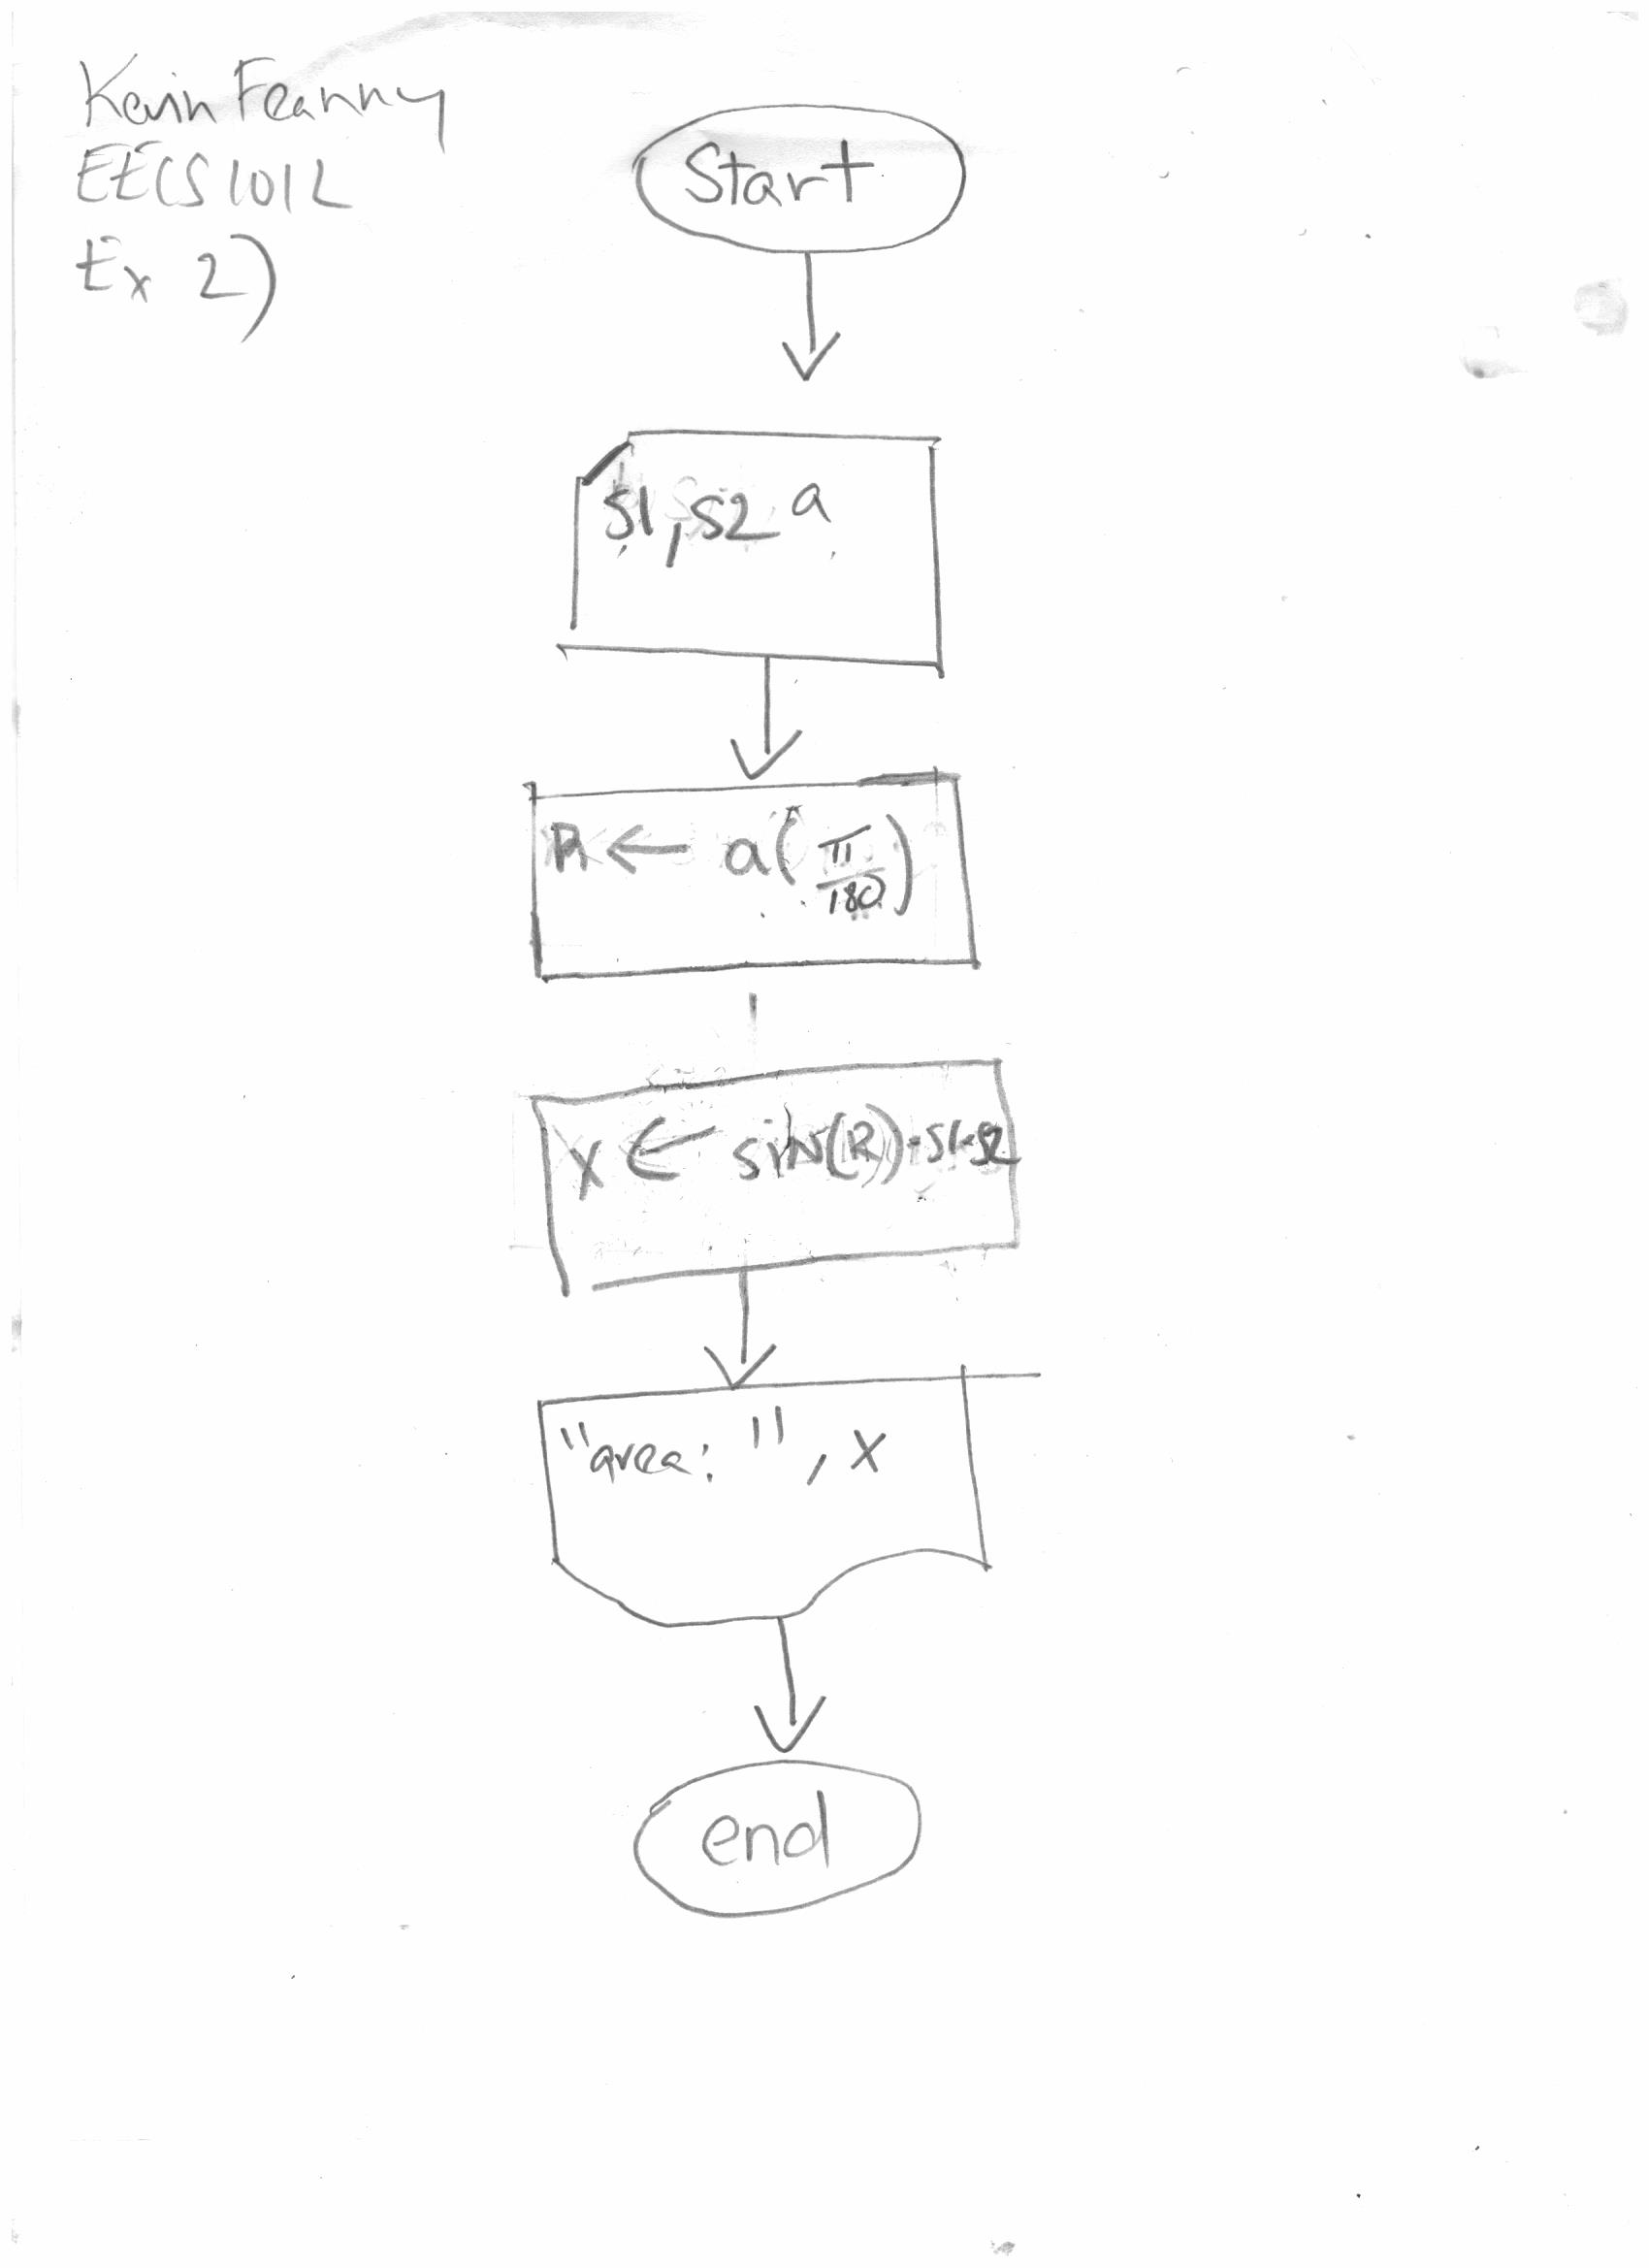 Kevin Feanny
EECS1012
Ex 2)
Start
S1, S2 a
R ← a(π/180)
X ← sin(R)·S1·S2
"area: ", X
end